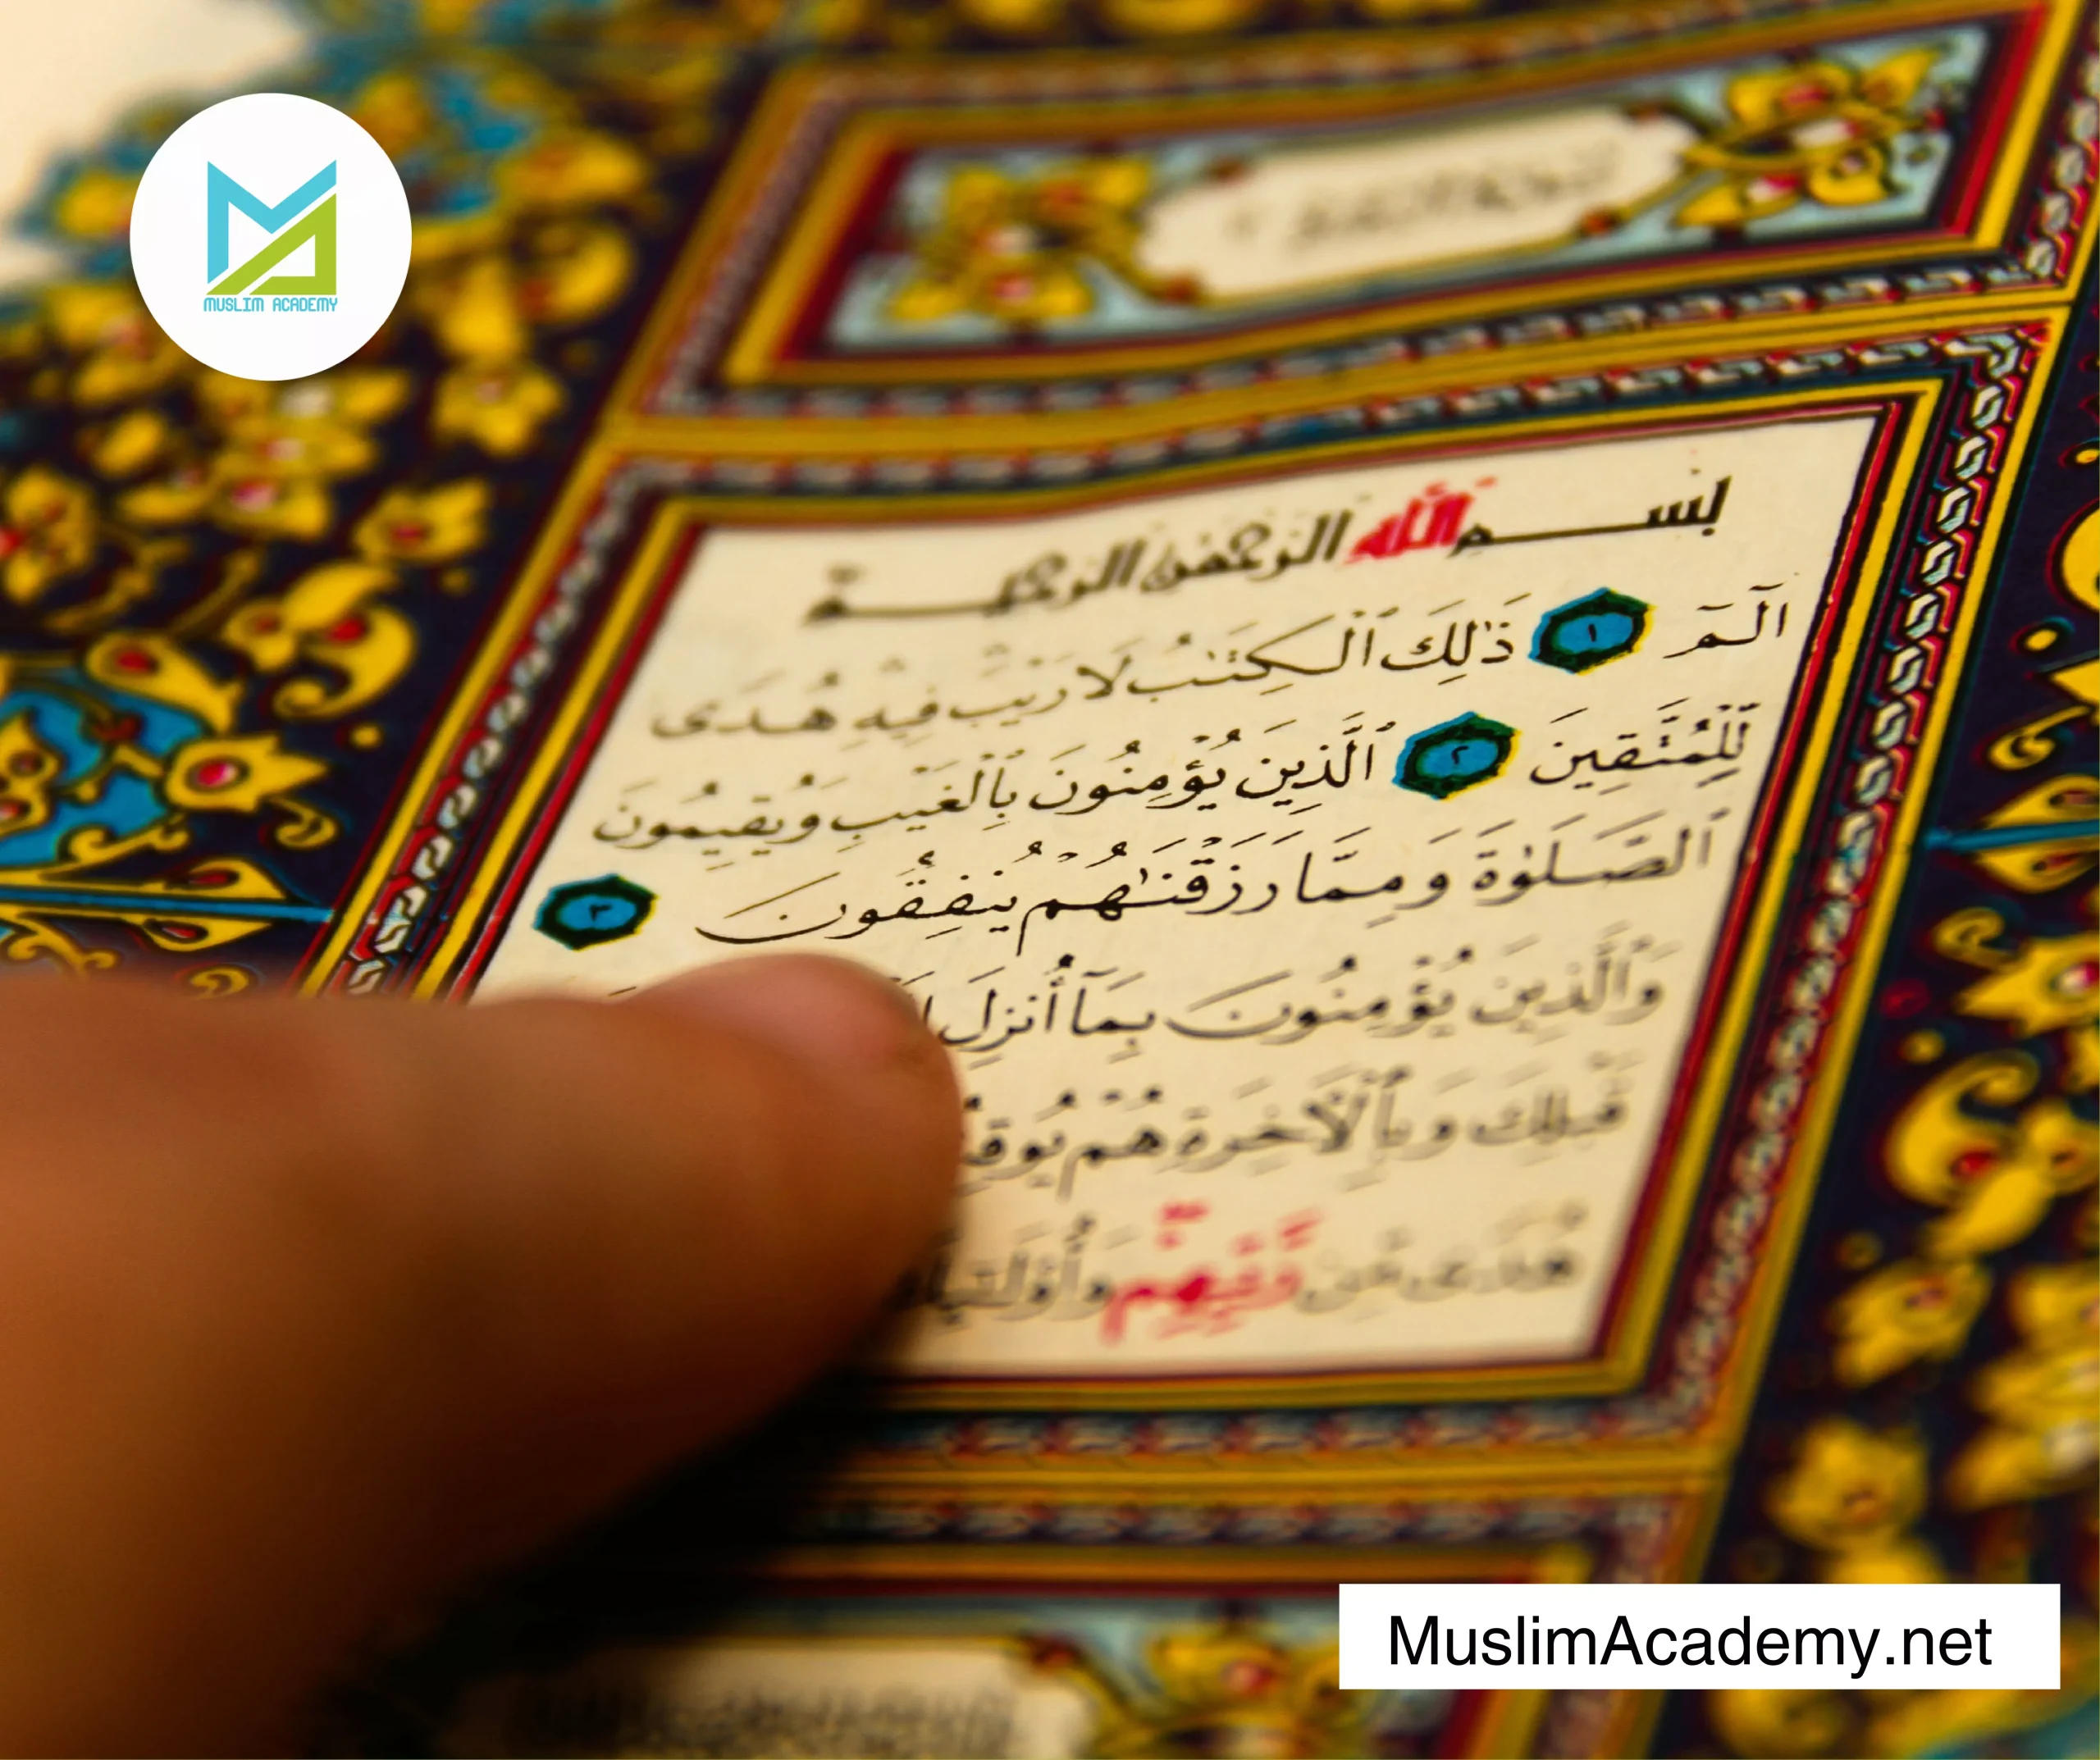 MUSLIM ACADEMY
بسم الله الرحمن الرحيم
الٓمٓ ١ ذَٰلِكَ ٱلْكِتَٰبُ لَا رَيْبَ فِيهِ هُدًى
لِّلْمُتَّقِينَ ٢ ٱلَّذِينَ يُؤْمِنُونَ بِٱلْغَيْبِ وَيُقِيمُونَ
ٱلصَّلَوٰةَ وَمِمَّا رَزَقْنَٰهُمْ يُنفِقُونَ ٣
وَٱلَّذِينَ يُؤْمِنُونَ بِمَآ أُنزِلَ
قَبْلِكَ وَبِٱلْأٓخِرَةِ هُمْ
هُدًى مِّن رَّبِّهِمْ
MuslimAcademy.net